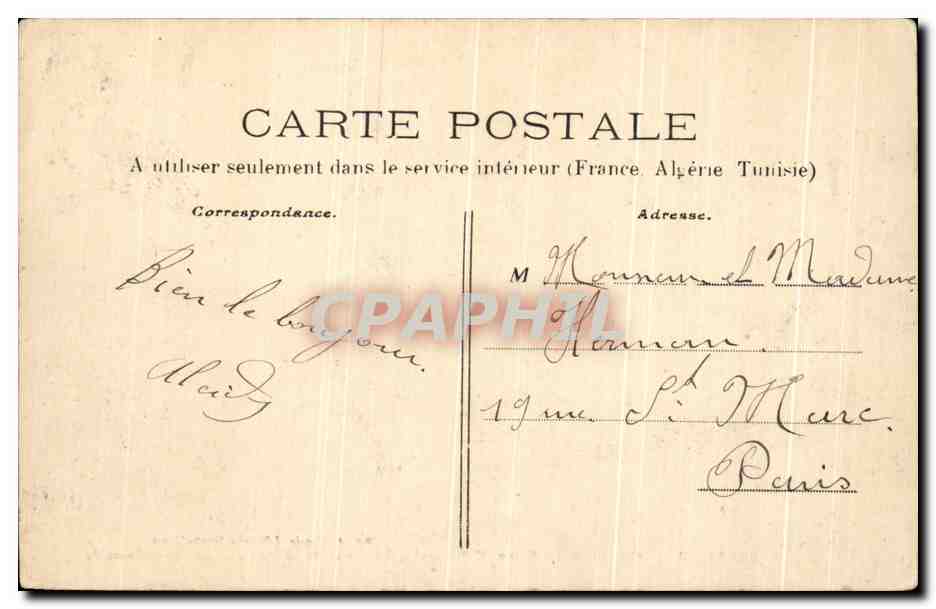 CARTE POSTALE
A utiliser seulement dans le service intérieur (France, Algérie Tunisie)
Correspondance.
Bien de bonjour.
Adresse.
M Monsieur et Madame
Herman.
19 rue St Marc.
Paris
CPAPHIL